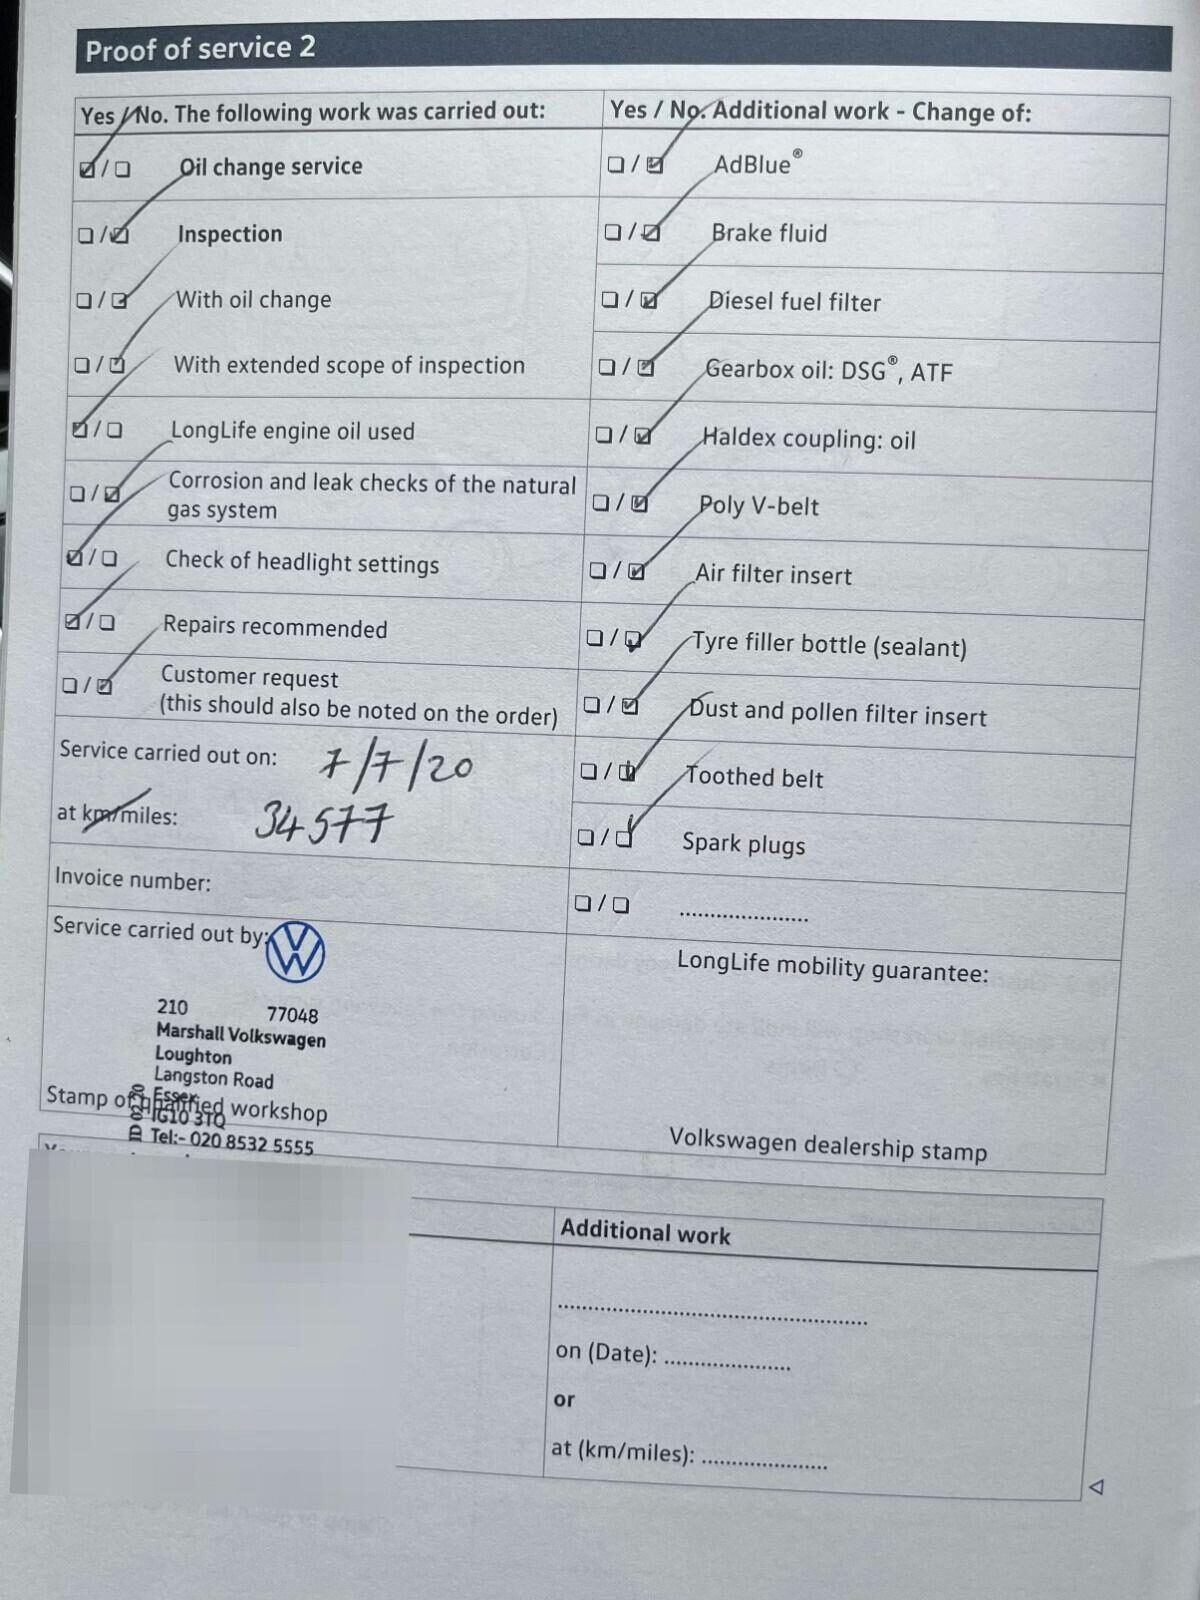 Proof of service 2
Yes / No. The following work was carried out:
☑ / ☐ Oil change service
☐ / ☑ Inspection
☐ / ☑ With oil change
☐ / ☑ With extended scope of inspection
☑ / ☐ LongLife engine oil used
☐ / ☑ Corrosion and leak checks of the natural
gas system
☑ / ☐ Check of headlight settings
☑ / ☐ Repairs recommended
☐ / ☑ Customer request
(this should also be noted on the order)
Service carried out on: 7/7/20
at km/miles: 34577
Invoice number:
Service carried out by:
VW
210 77048
Marshall Volkswagen
Loughton
Langston Road
Essex
IG10 3TQ
Tel:- 020 8532 5555
Stamp of qualified workshop
Yes / No. Additional work - Change of:
☐ / ☑ AdBlue®
☐ / ☑ Brake fluid
☐ / ☑ Diesel fuel filter
☐ / ☑ Gearbox oil: DSG®, ATF
☐ / ☑ Haldex coupling: oil
☐ / ☑ Poly V-belt
☐ / ☑ Air filter insert
☐ / ☑ Tyre filler bottle (sealant)
☐ / ☑ Dust and pollen filter insert
☐ / ☑ Toothed belt
☐ / ☑ Spark plugs
☐ / ☐ ......................
LongLife mobility guarantee:
Volkswagen dealership stamp
Additional work
....................................................
on (Date): .....................
or
at (km/miles): .....................